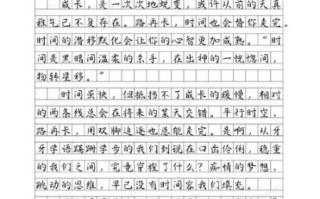 成长，是一次次地蜕变，或许从前的天真
稚气已不复存在。路再长，时间也会替你走完。
时间的潜移默化会让你的心智更加成熟。“时
间是黑暗间温柔的杀手，在出神的一恍惚间，
物转星移。”
时间虽快，但抵挡不了成长的缓慢，相对
的两条线总会在将来的某天交错。平行时空，
路再长，用双脚追逐也总能走完。是啊，从牙
牙学语蹒跚学当的我们到现在口出伶俐，稳重
的我们之间，究竟穿梭了什么？痴情的梦想，
跳动的思维，早已没有时间容我们填充。